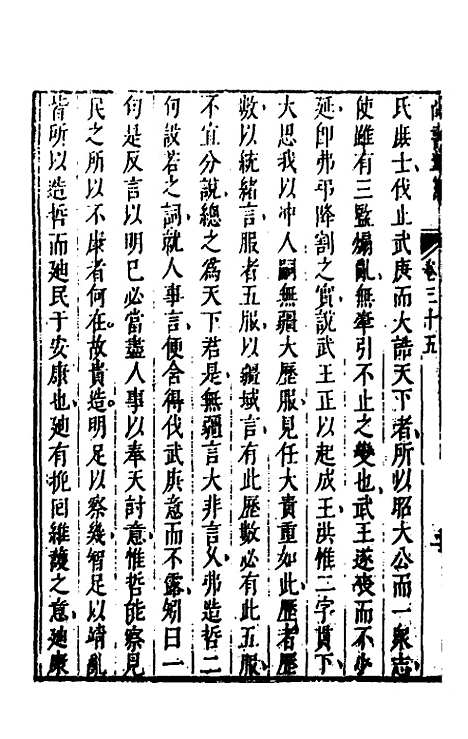 卷三十五
氏庶士伐止武庚而大誥天下者所以昭大公而一衆志
使雖有三監煽亂無牽引不止之變也武王遂喪而不少
延卽弗弔降割之實說武王正以起成王洪惟二字貫下
大思我以冲人嗣無疆大歷服見任大責重如此歷者歷
數以統緒言服者五服以疆域言有此歷數必有此五服
不宜分說總之為天下君是無疆言大非言乆弗造哲二
何設若之詞就人事言便舍得伐武庚意而不露矧曰一
句是反言以明已必當盡人事以奉天討意惟哲能察見
民之所以不康者何在故貴造明足以察幾智足以靖亂
皆所以造哲而廸民于安康也廸有挽回維護之意廸康